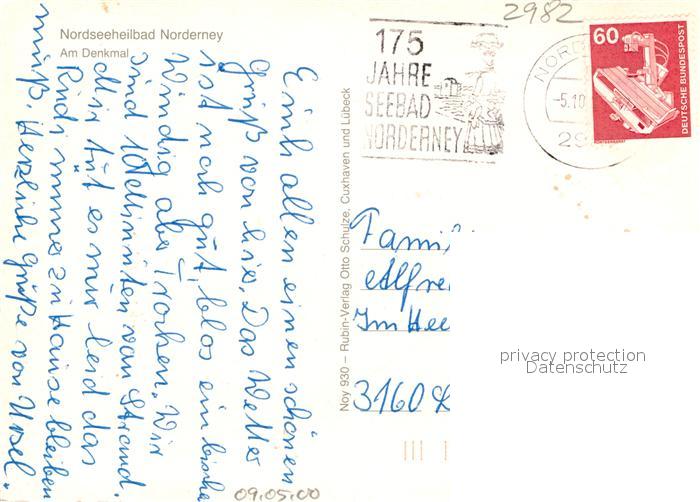 Nordseeheilbad Norderney
Am Denkmal
Euch allen einen schönen
Gruß von hier. Das Wetter
ist noch gut, blos ein bische
Windig aber Trocken. Wir
sind 10 Minuten vom Strand.
Mir tut es nur leid das
Rudi immer zu Hause bleiben
muß. Herzliche Grüße von Ursel.
Noy 930 – Rubin-Verlag Otto Schulze, Cuxhaven und Lübeck
2982
175
JAHRE
SEEBAD
NORDERNEY
NORD
-5.10
29
60
DEUTSCHE BUNDESPOST
RÖNTGENGERÄT
Fami
Alfre
Im Hee
3160
privacy protection
Datenschutz
09.05.00